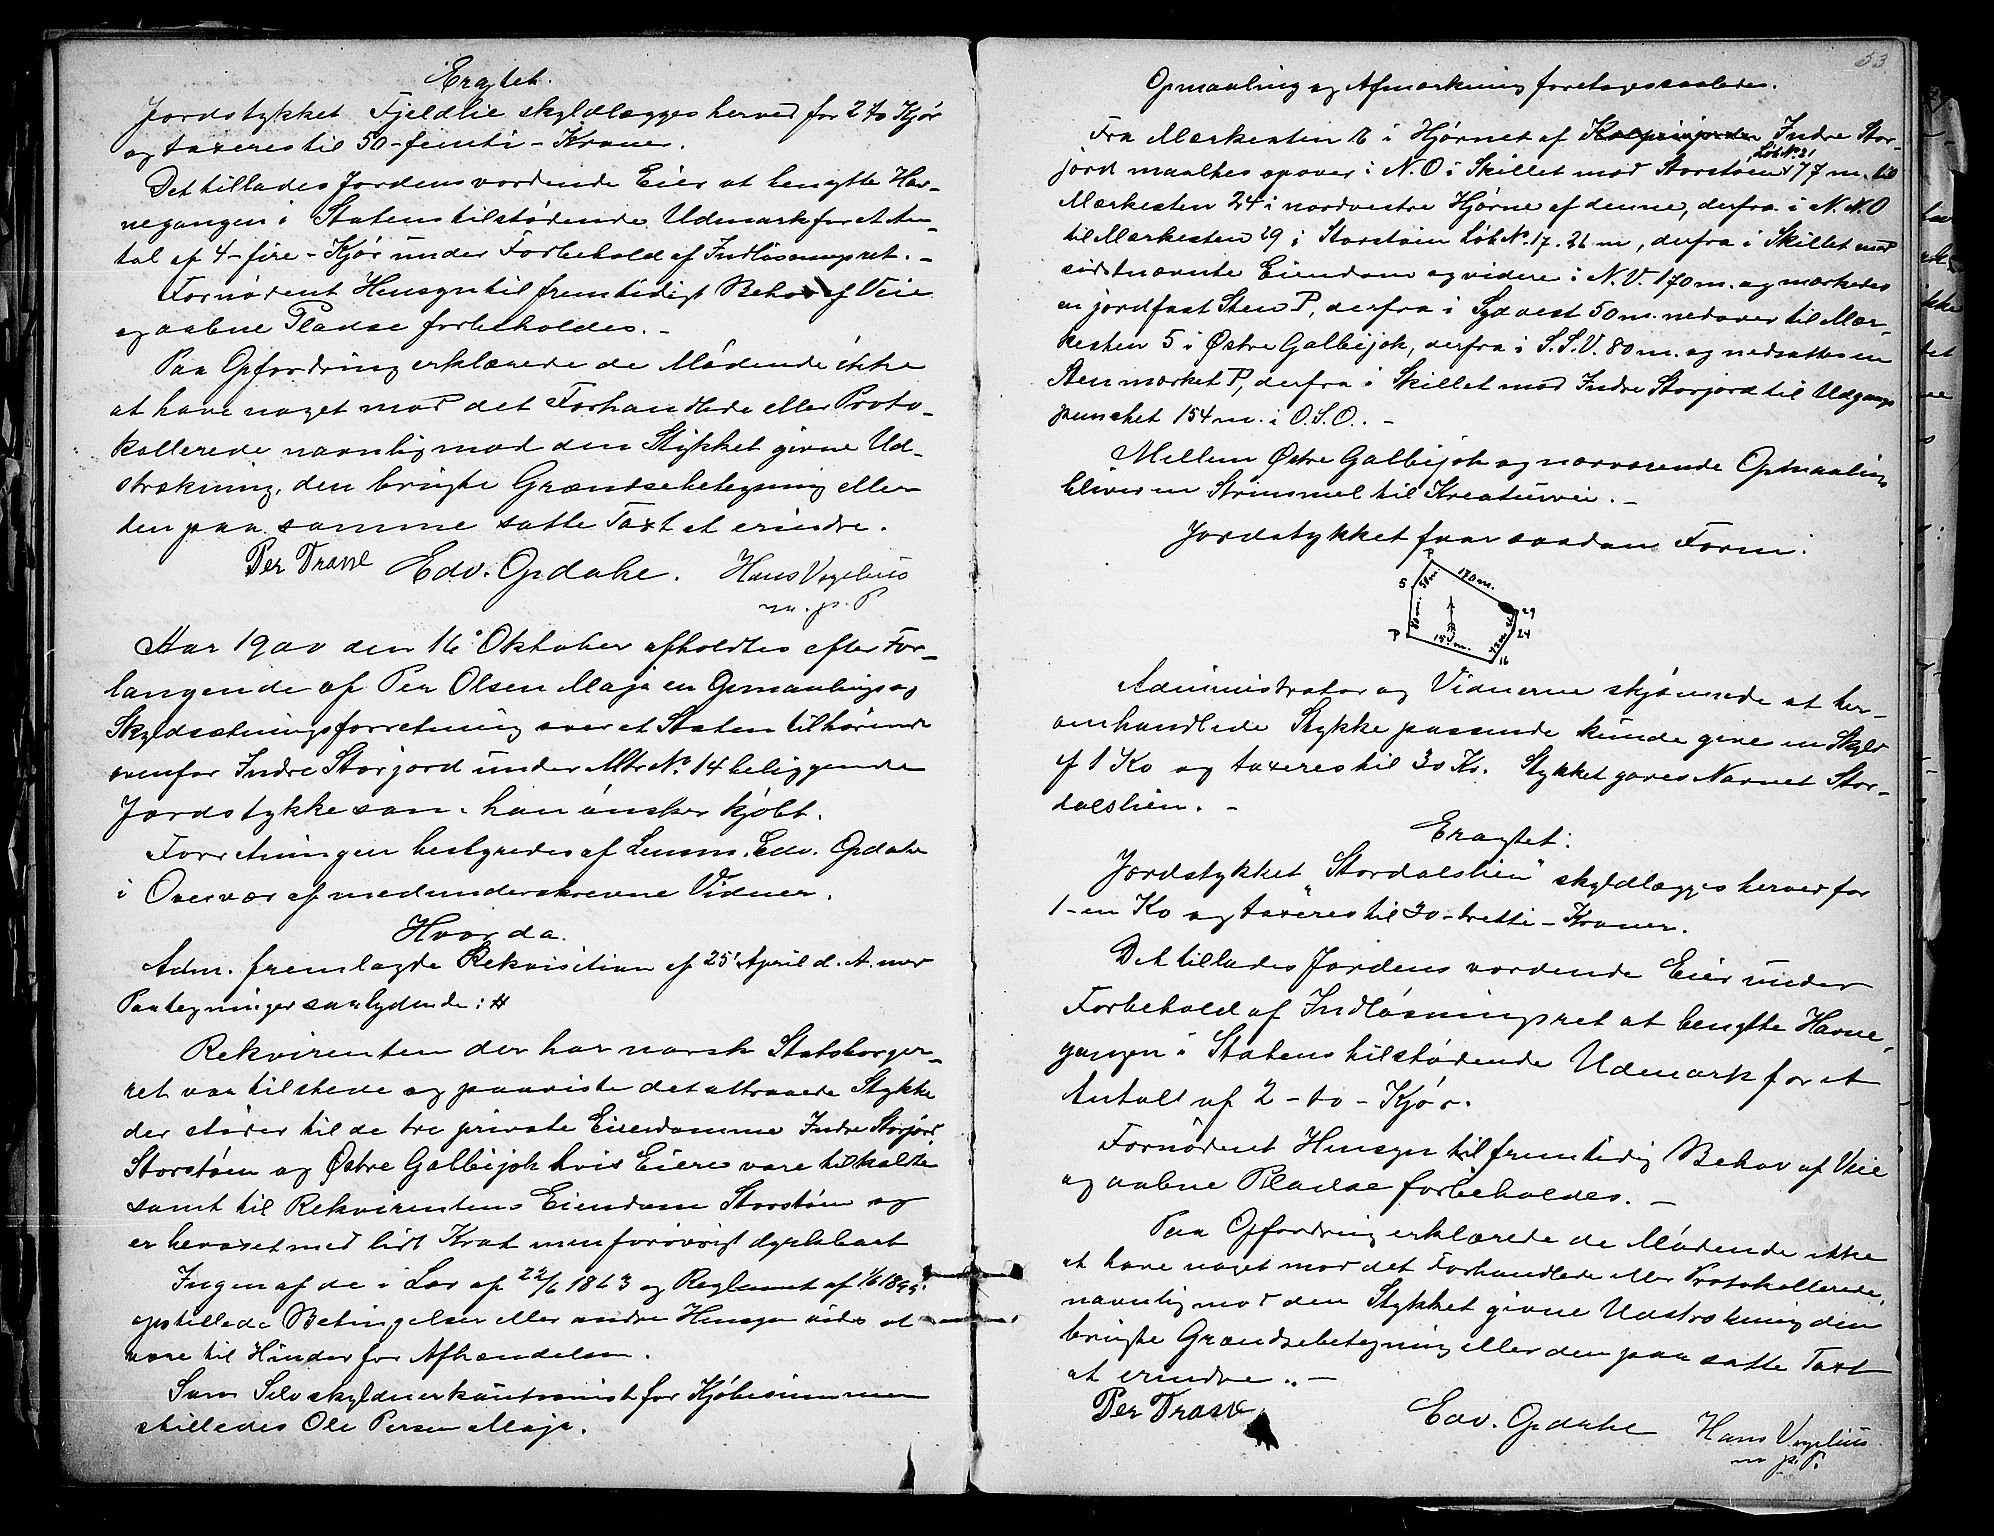 Eragtet.
Jordstykket Fjeldlie skyldlægges herved for 2 to Kjør
og taxeres til 50-femti-Kroner.
Det tillades Jordens vordende Eier at benytte Hav-
negangen i Statens tilstødende Udmark for et An-
tal af 4-fire-Kjør under Forbehold af Indløsningsret. -
Fornødent Hensyn til fremtidigt Behov af Veie
og aabne Pladse forbeholdes. -
Paa Opfordring erklærede de Mødende ikke
at have noget mod det Forhandlede eller Proto-
kollerede navnlig mod den Stykket givne Ud-
strækning, den brugte Grændsebetegning eller
den paa samme satte Taxt at erindre.
Per Trasti Edv. Opdahe. Hans Vogelius
m. p. P
Aar 1900 den 16 Oktober afholdtes efter For-
langende af Per Olsen Maja en Opmaalings og
Skyldsætningsforretning over et Staten tilhørende
ovenfor Indre Storjord under Mtr No. 14 beliggende
Jordstykke som han ønsker kjøbt.
Forretningen bestyredes af Lensm. Edv. Opdahe
i Overvær af medunderskrevne Vidner.
Hvorda.
Adm. fremlagde Rekvisition af 25 April d. A. med
Paategninger saalydende: #
Rekvirenten der har norsk Statsborger-
ret var tilstede og paaviste det attraaede Stykke
der støder til de tre private Eiendomme Indre Storjord
Storstøen og Østre Galbijok hvis Eiere vare tilkaldte
samt til Rekvirentens Eiendom Storstøen og
er bevoxet med lidt Krat men forøvrigt dyrkbart
Ingen af de i Lov af 22/6 1863 og Reglement af 1/6 1895
opstillede Betingelser eller andre Hensyn vides at
være til Hinder for Afhændelsen.
Som Selvskyldnerkautionist for Kjøbesummen
stilledes Ole Persen Maja.
53
Opmaaling og Afmærkning foretoges saaledes.
Fra Mærkesten 16 i Hjørnet af Indre Stor-
Løb No. 21
jord maaltes opover i N.O i Skillet mod Storstøen 77 m. til
Mærkesten 24 i nordvestre Hjørne af denne, derfra i N.N.O
til Mærkesten 29 i Storstøen Løb No. 17. 26 m, derfra i Skillet med
sidstnævnte Eiendom og videre i N.V. 170 m. og mærkedes
en jordfast Sten P, derfra i Sydvest 50 m. nedover til Mær-
kesten 5 i Østre Galbijok, derfra i S.S.V. 80 m. og nedsattes en
Sten mærket P, derfra i Skillet mod Indre Storjord til Udgangs
punchet 154 m. i O.S.O. -
Mellem Østre Galbijok og nærværende Opmaaling
bliver en Strimmel til Kreaturvei. -
Jordstykket faar saadan Form:
P
5 50 m. 170 m.
29
80 m. 26 24
P 154 m. 77 m
16
Administrator og Vidnerne skjønnede at her-
omhandlede Stykke passende kunde give en Skyld
af 1 Ko og taxeres til 30 Kr. Stykket gaves Navnet Stor-
dalslien. -
Eragtet:
Jordstykket "Stordalslien" skyldlægges herved for
1-en Ko og taxeres til 30-tretti-Kroner.
Det tillades Jordens vordende Eier under
Forbehold af Indløsningsret at benytte Havne-
gangen i Statens tilstødende Udmark for et
Antall af 2-to-Kjør.
Fornødent Hensyn til fremtidig Behov af Veie
og aabne Pladse forbeholdes. -
Paa Opfordring erklærede de Mødende ikke
at have noget mod det Forhandlede eller Protokollerede,
navnlig mod den Stykket givne Udstrækning den
brugte Grændsebetegning eller den paa satte Taxt
at erindre. -
Per Trasti Edv. Opdahe Hans Vogelius
m. p. P.